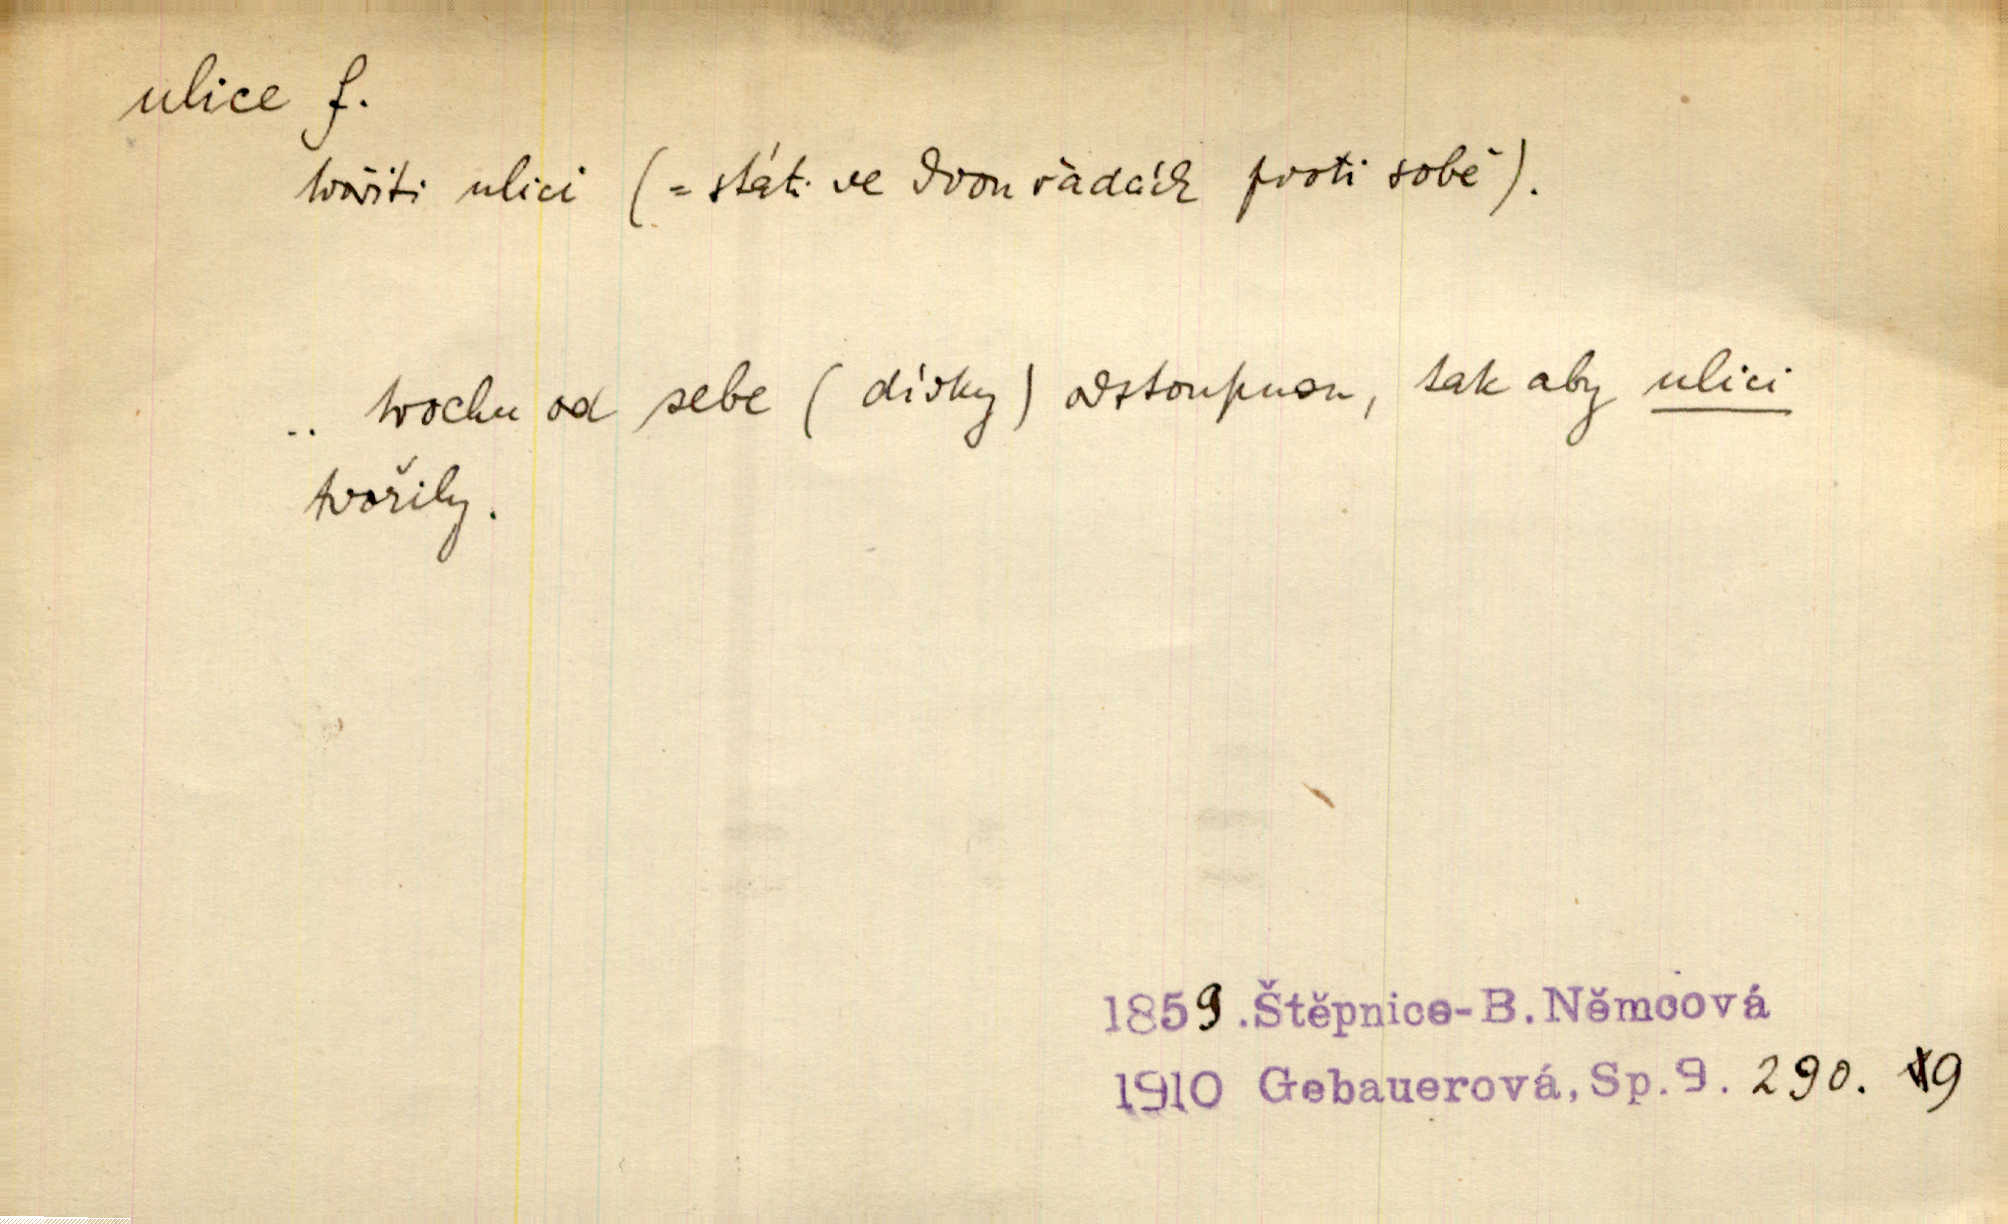 ulice f.
tvořiti ulici (= státi ve dvou řadách proti sobě).
.. trochu od sebe (dívky) odstoupnou, tak aby ulici
tvořily.
1859.Štěpnice-B.Němcová
1910 Gebauerová,Sp.9. 290. 19